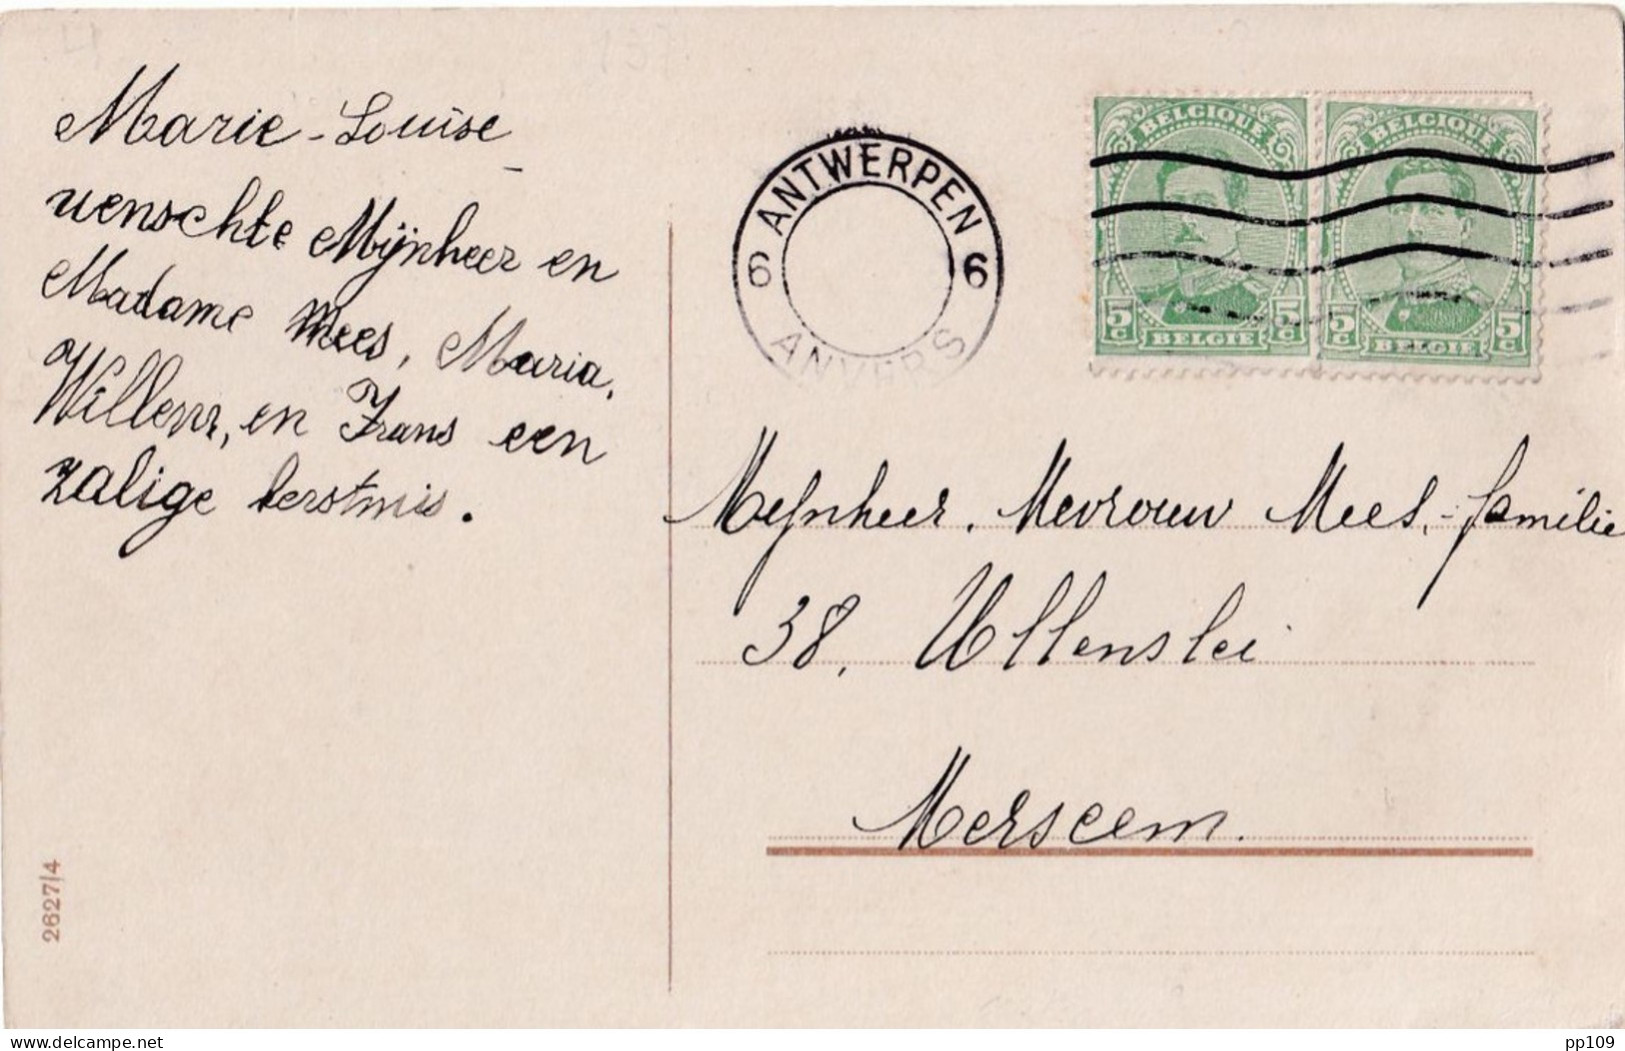 Marie-Louise
wenschte Mijnheer en
Madame Mees, Maria,
Willem, en Frans een
zalige kerstmis.
2627/4
ANTWERPEN
6 6
ANVERS
BELGIQUE
5c 5c
BELGIË
BELGIQUE
5c 5c
BELGIË
Mejnheer. Mevrouw Mees,-familie
38, Ullenslei
Merscem.
delcampe.net
pp109